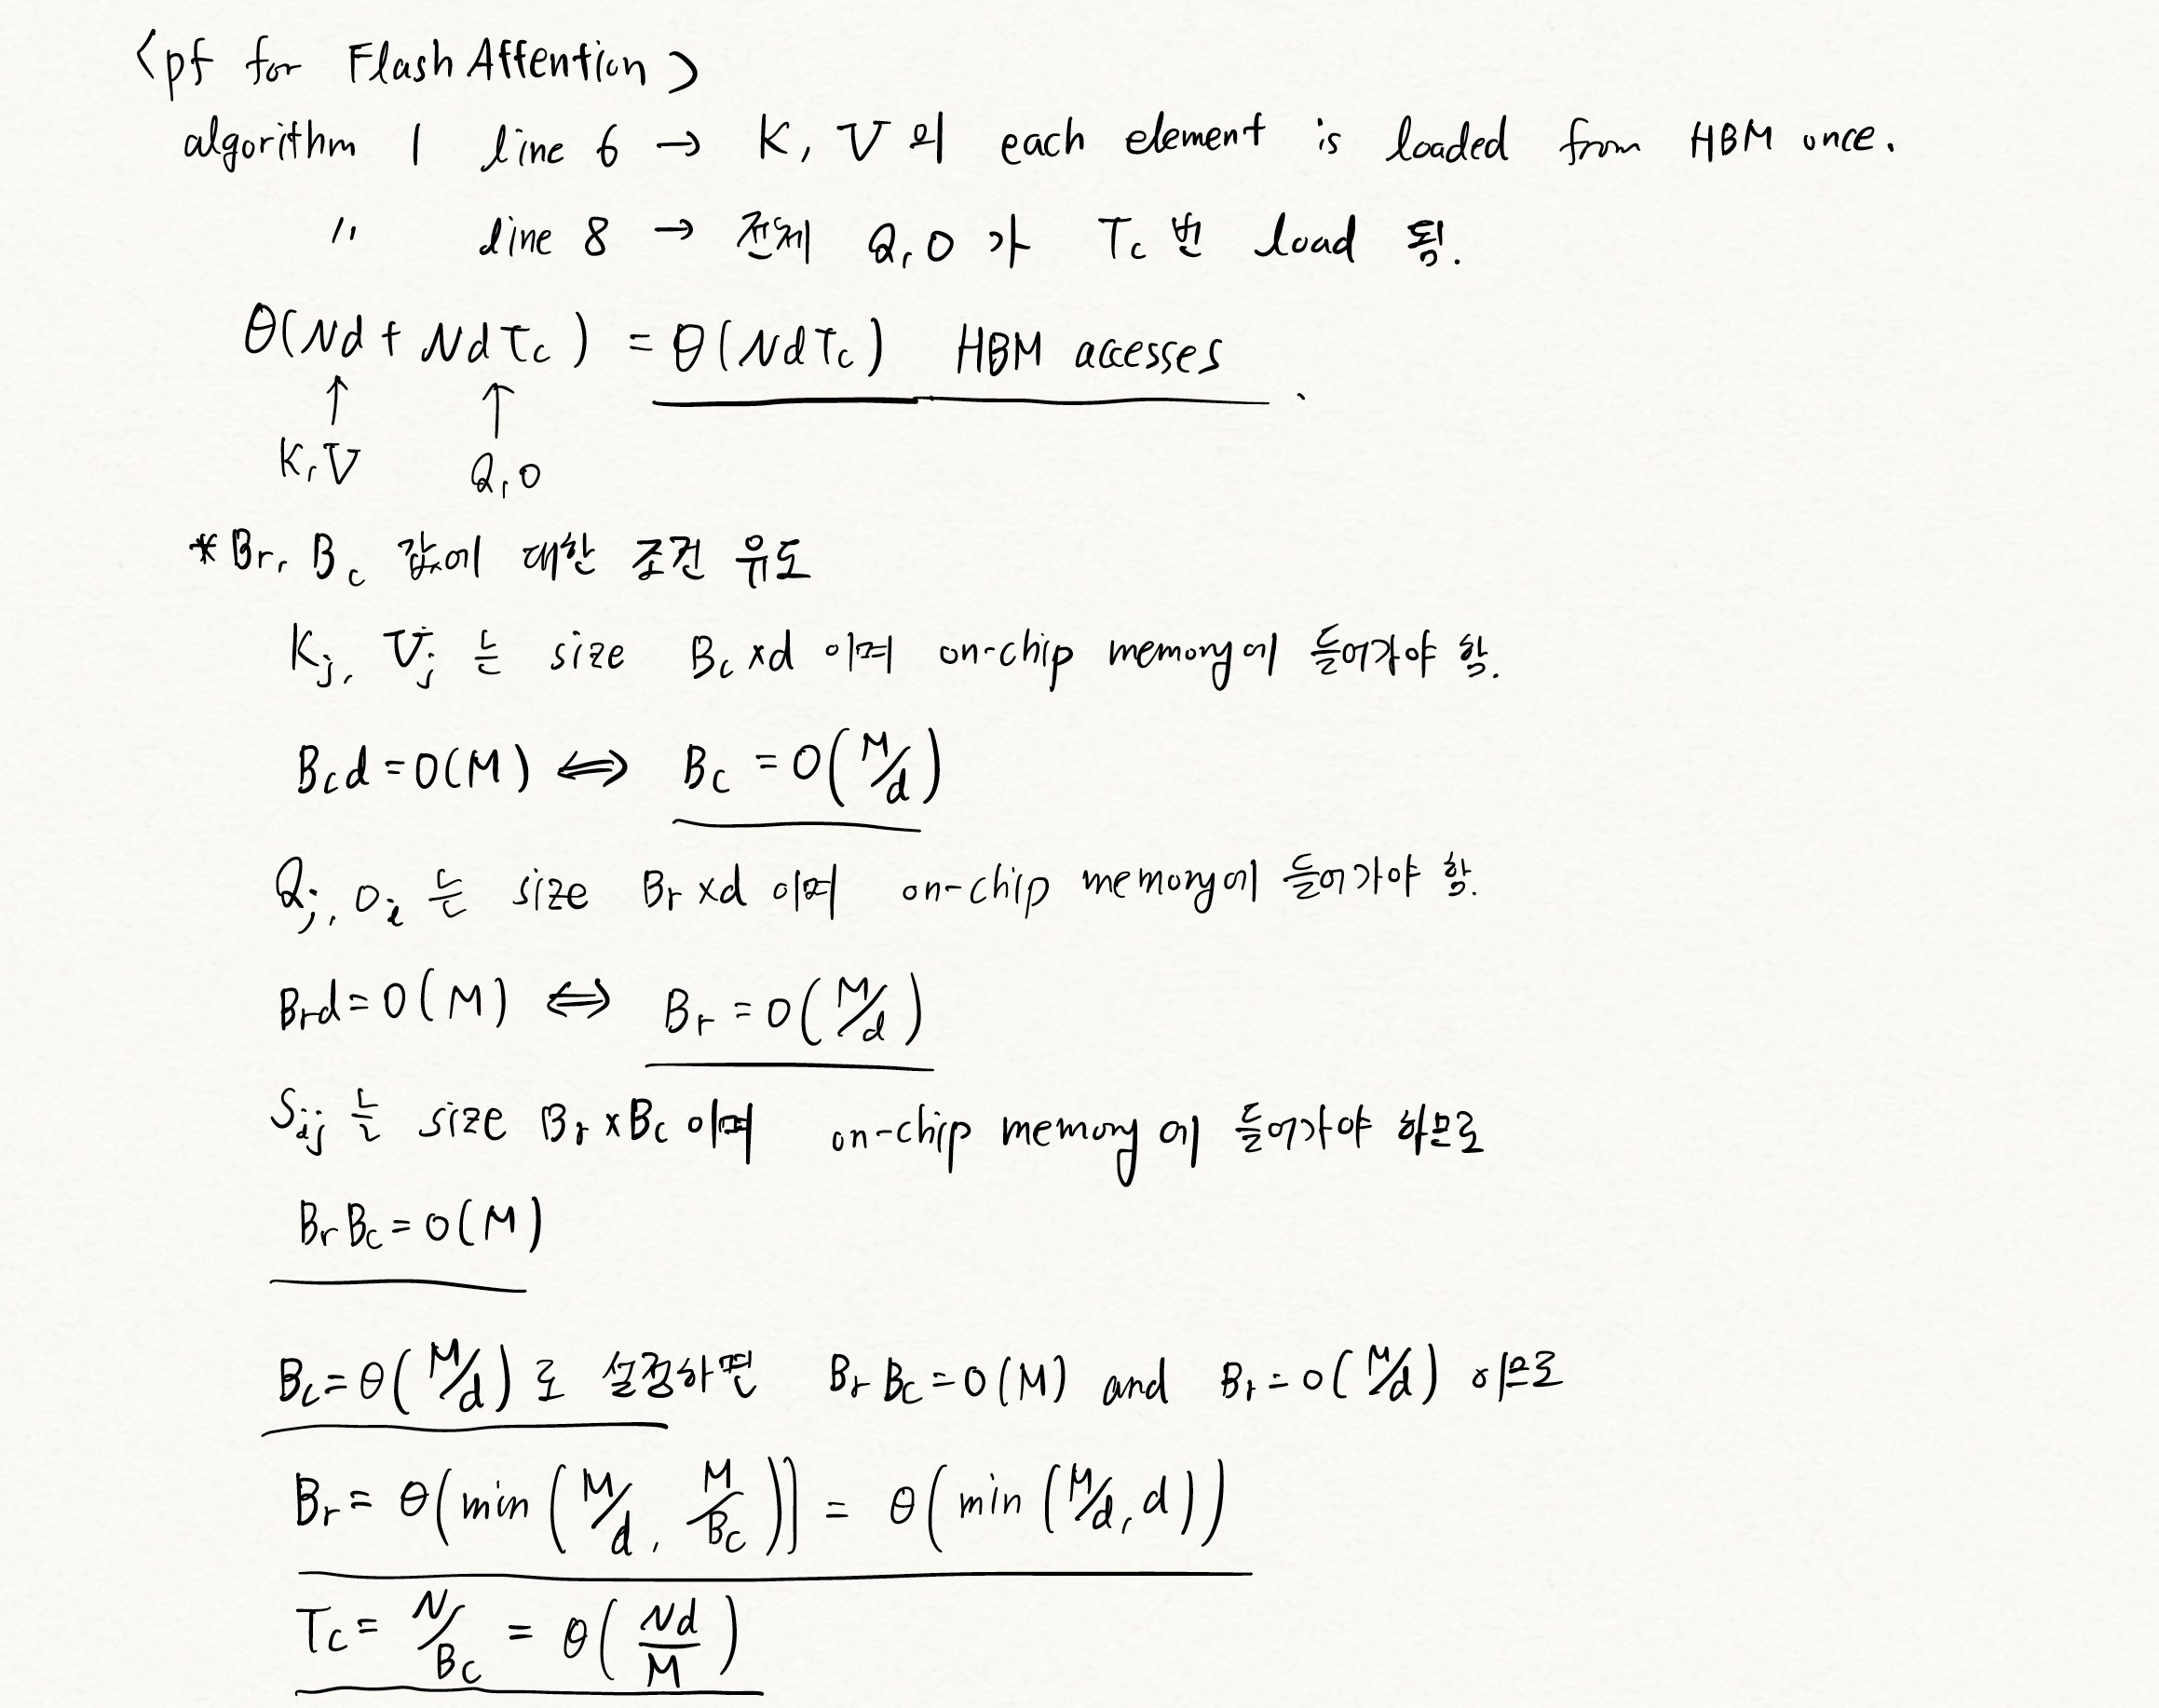 <pf for Flash Attention>
algorithm 1 line 6 → K, V 의 each element is loaded from HBM once.
〃 line 8 → 전체 Q, O 가 Tc 번 load 됨.
θ(Nd + NdTc) = θ(NdTc) HBM accesses.
↑ ↑
K, V Q, O
* Br, Bc 값에 대한 조건 유도
Kj, Vj 는 size Bc×d 이며 on-chip memory에 들어가야 함.
Bcd = O(M) ⟺ Bc = O(M/d)
Qj, Oi 는 size Br×d 이며 on-chip memory에 들어가야 함.
Brd = O(M) ⟺ Br = O(M/d)
Sij 는 size Br×Bc 이며 on-chip memory 에 들어가야 하므로
BrBc = O(M)
Bc = θ(M/d) 로 설정하면 BrBc = O(M) and Br = O(M/d) 이므로
Br = θ(min(M/d, M/Bc)) = θ(min(M/d, d))
Tc = N/Bc = θ(Nd/M)